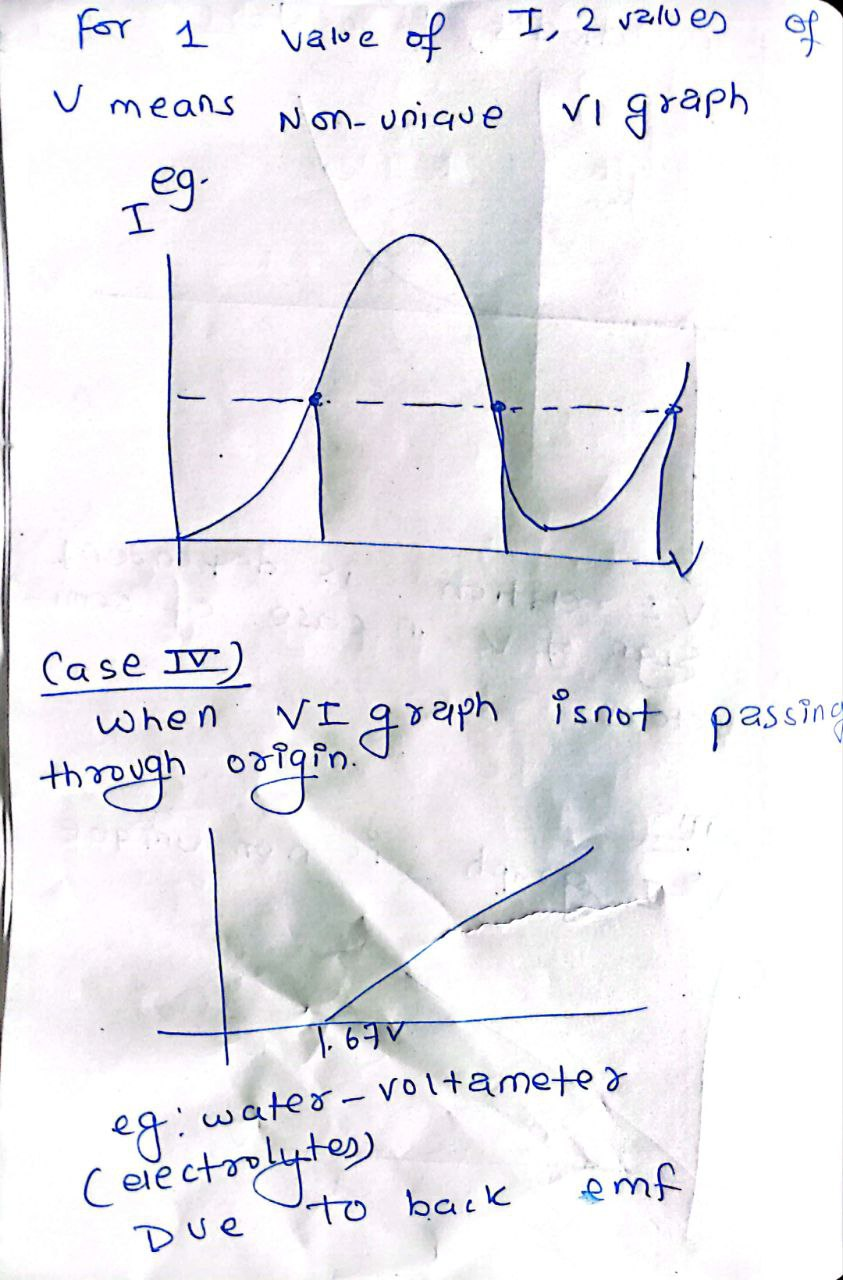 For 1 value of I, 2 values of
V means Non-unique VI graph
eg.
I
V
Case IV)
when VI graph isnot passing
through origin.
1.67V
eg: water-voltameter
(electrolytes)
Due to back emf